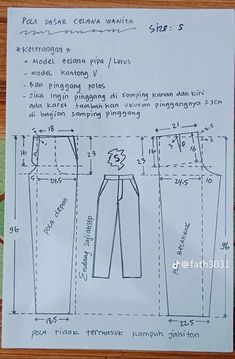 POLA DASAR CELANA WANITA
Size : S
* Keterangan *
- Model celana pipa / Lurus
- model kantong V
- Ban pinggang polos
- Jika ingin pinggang di samping kanan dan kiri
ada karet tambahkan ukuran pinggangnya ± 3cm
di bagian samping pinggang
5 18
21
16
23
S
23
16
5
19.5
24.5
10
96
POLA depan
Endang Sajiatulp
96
@fath3031
18.5
22.5
POLA tidak termasuk kampuh jahitan